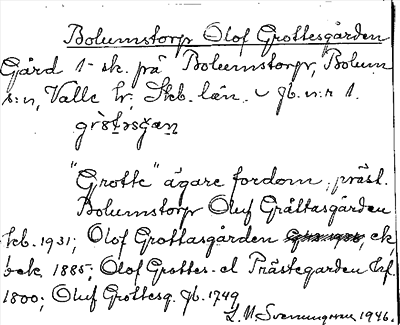 Bolumstorp Olof Grottesgården
Gård 1 sk. på Bolumstorp, Bolum
s:n, Valle hr, Skb. län. jb. n:r 1.
"Grotte" ägare fordom; präst.
Bolumstorp Oluf Gråttasgården
1931; Olof Grottasgården ek.
bok 1885; Olof Grottes- el Prästegarden
1800; Oluf Grottesg. Jb. 1749
1946.